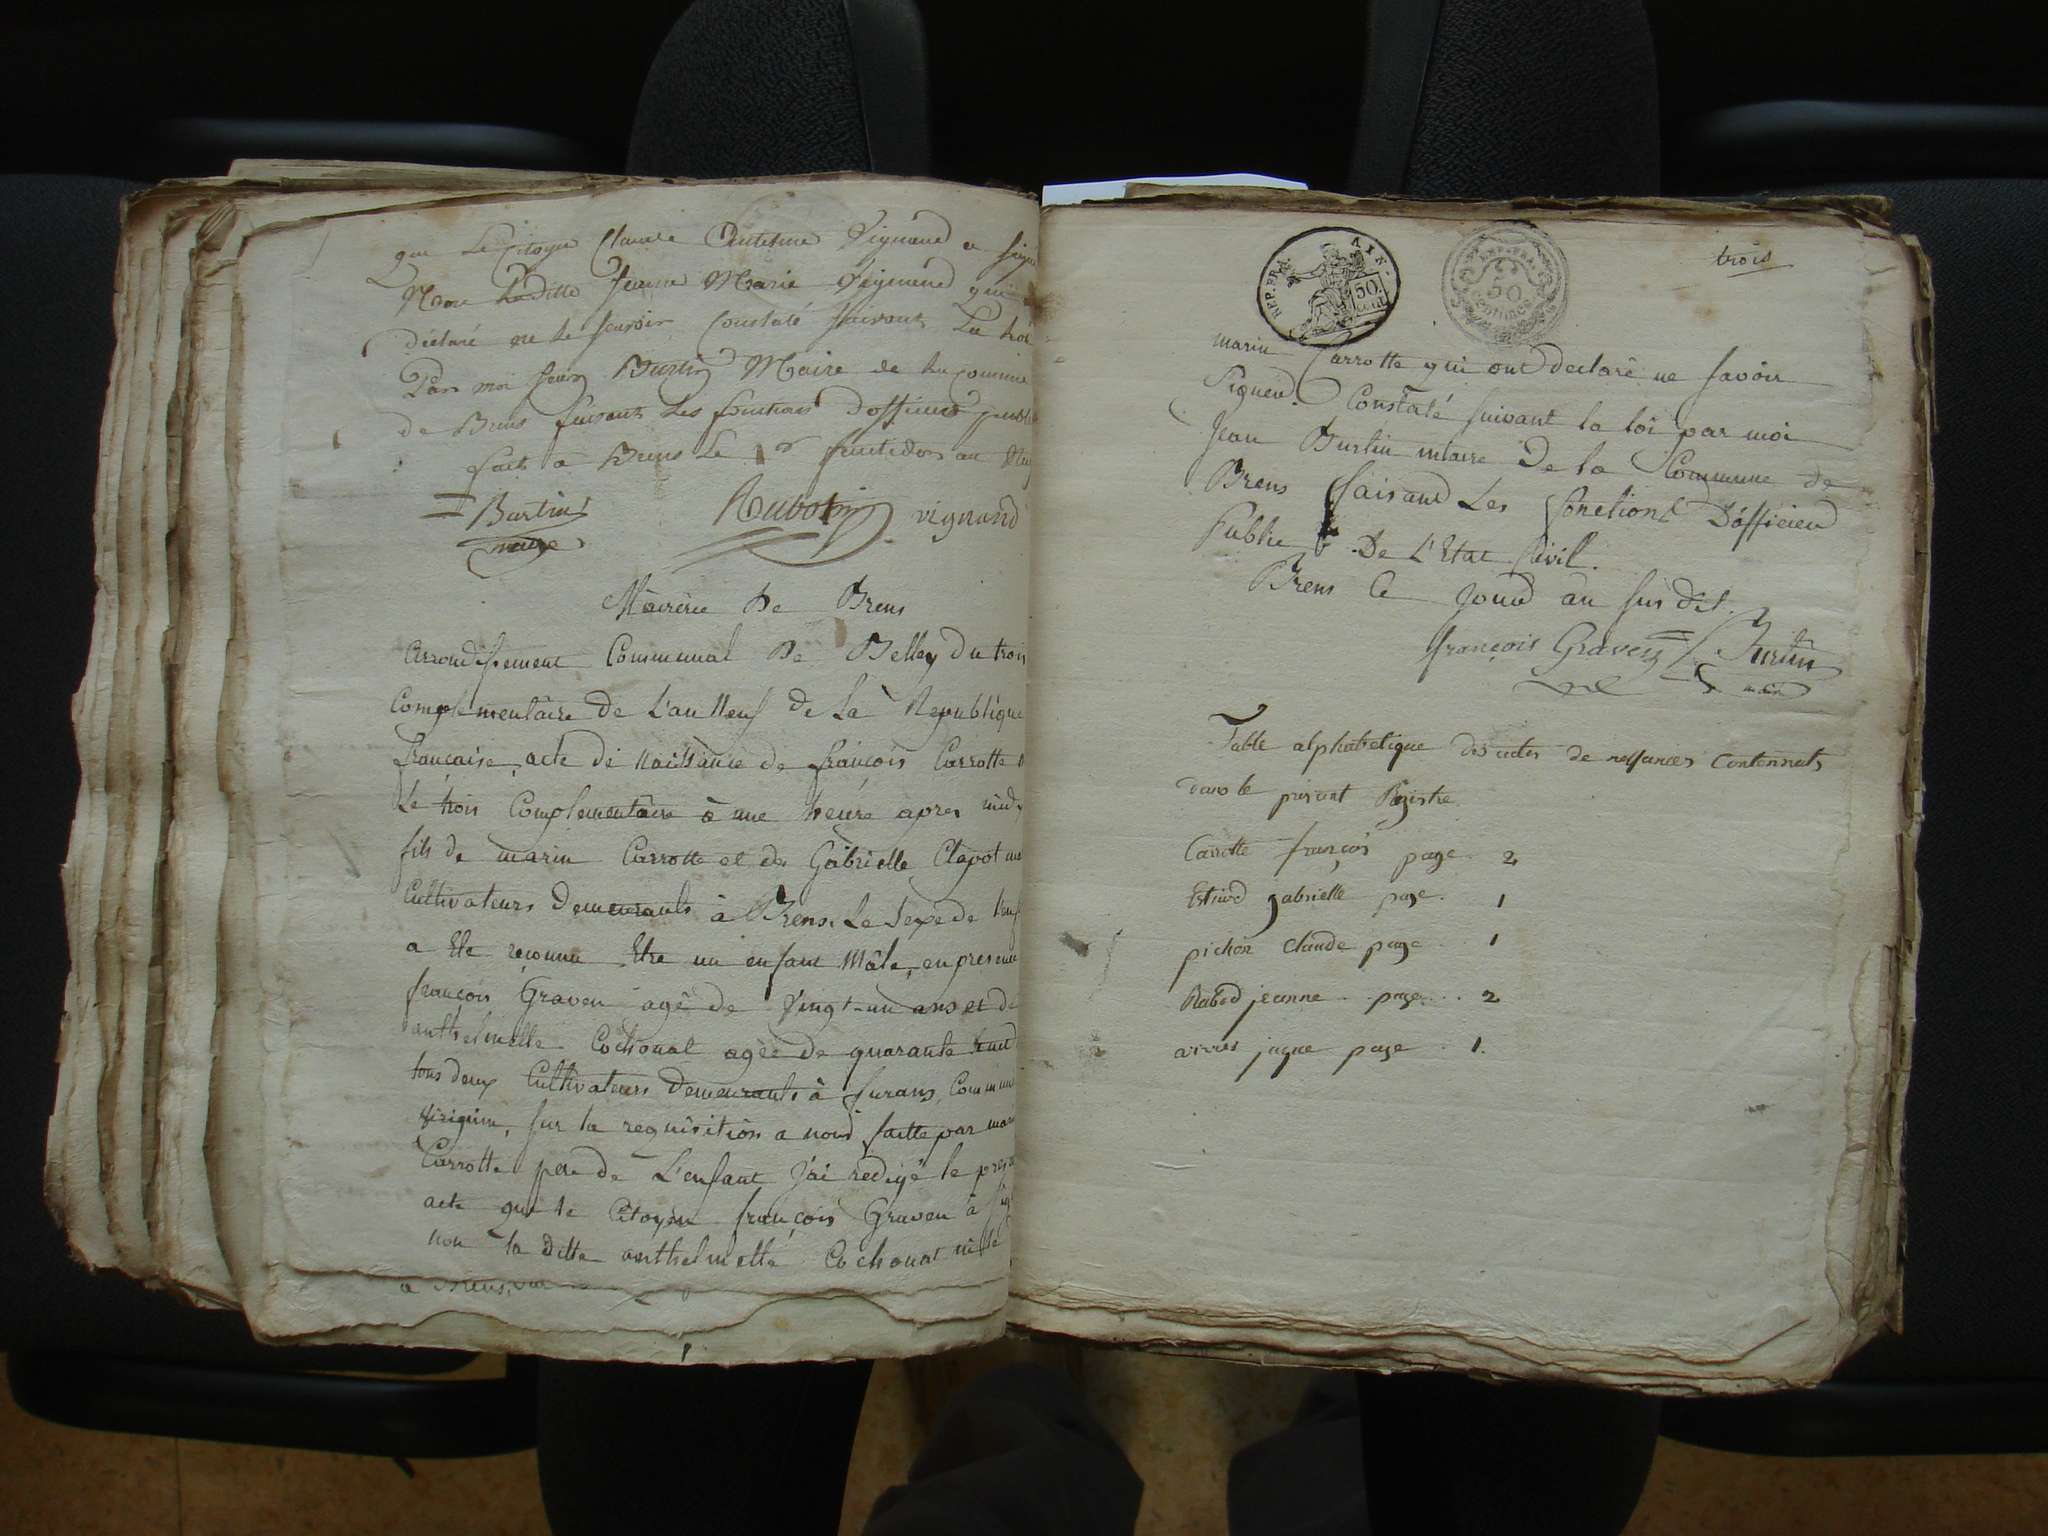 que Le Citoyen Claude Antelme Vignand a signé
Non La Ditte Jeanne Marie Vignand qui
déclaré ne le savoir Constaté suivant La Loi
Par moi Jean Burtin Maire de la Commune
de Brens faisant Les fonctions d'officier public
fait à Brens Le fructidor an
Burtin Rubod vignand
maire
Mairerie De Brens
Arrondissement Communal De Belley du trois
Complementaire de L'an Neuf de La Republique
française, acte de Naissance de françois Carrotte
Le trois Complementaire à une heure après midy
fils de marin Carrotte et de Gabrielle Clapot
Cultivateurs Demeurants à Brens. Le Sexe de l'enf
a Ete reconnu Etre un enfant Mâle, en presence
françois Graven agé de Vingt-un ans et de
anthelmette Cochonat agée de quarante huit
tous deux Cultivateurs Demeurants à furans, Commune
virignin, sur la requisition a nous faitte par marin
Carrotte pere de L'enfant J'ai redigé le present
acte que le Citoyen françois Graven à sig
non la Ditte anthelmette Cochonat ni le
a Brens,
REP. FRA. AIN.
50.
Cent.
REP. FRA.
50
centimes
trois
marin Carrotte qui ont declaré ne savoir
Signer. Constaté suivant la loi par moi
Jean Burtin maire De la Commune de
Brens faisant Les fonctions D'officier
Public De L'Etat Civil.
Brens le Jour an sus dit.
françois Graven Burtin
maire
Table alphabetique des actes de nessances Contennuts
dans le present Registre.
Carrotte françois page 2
Estivod gabrielle page. 1
pichon Claude page. 1
Rubod jeanne. page. 2
jaque page. 1.